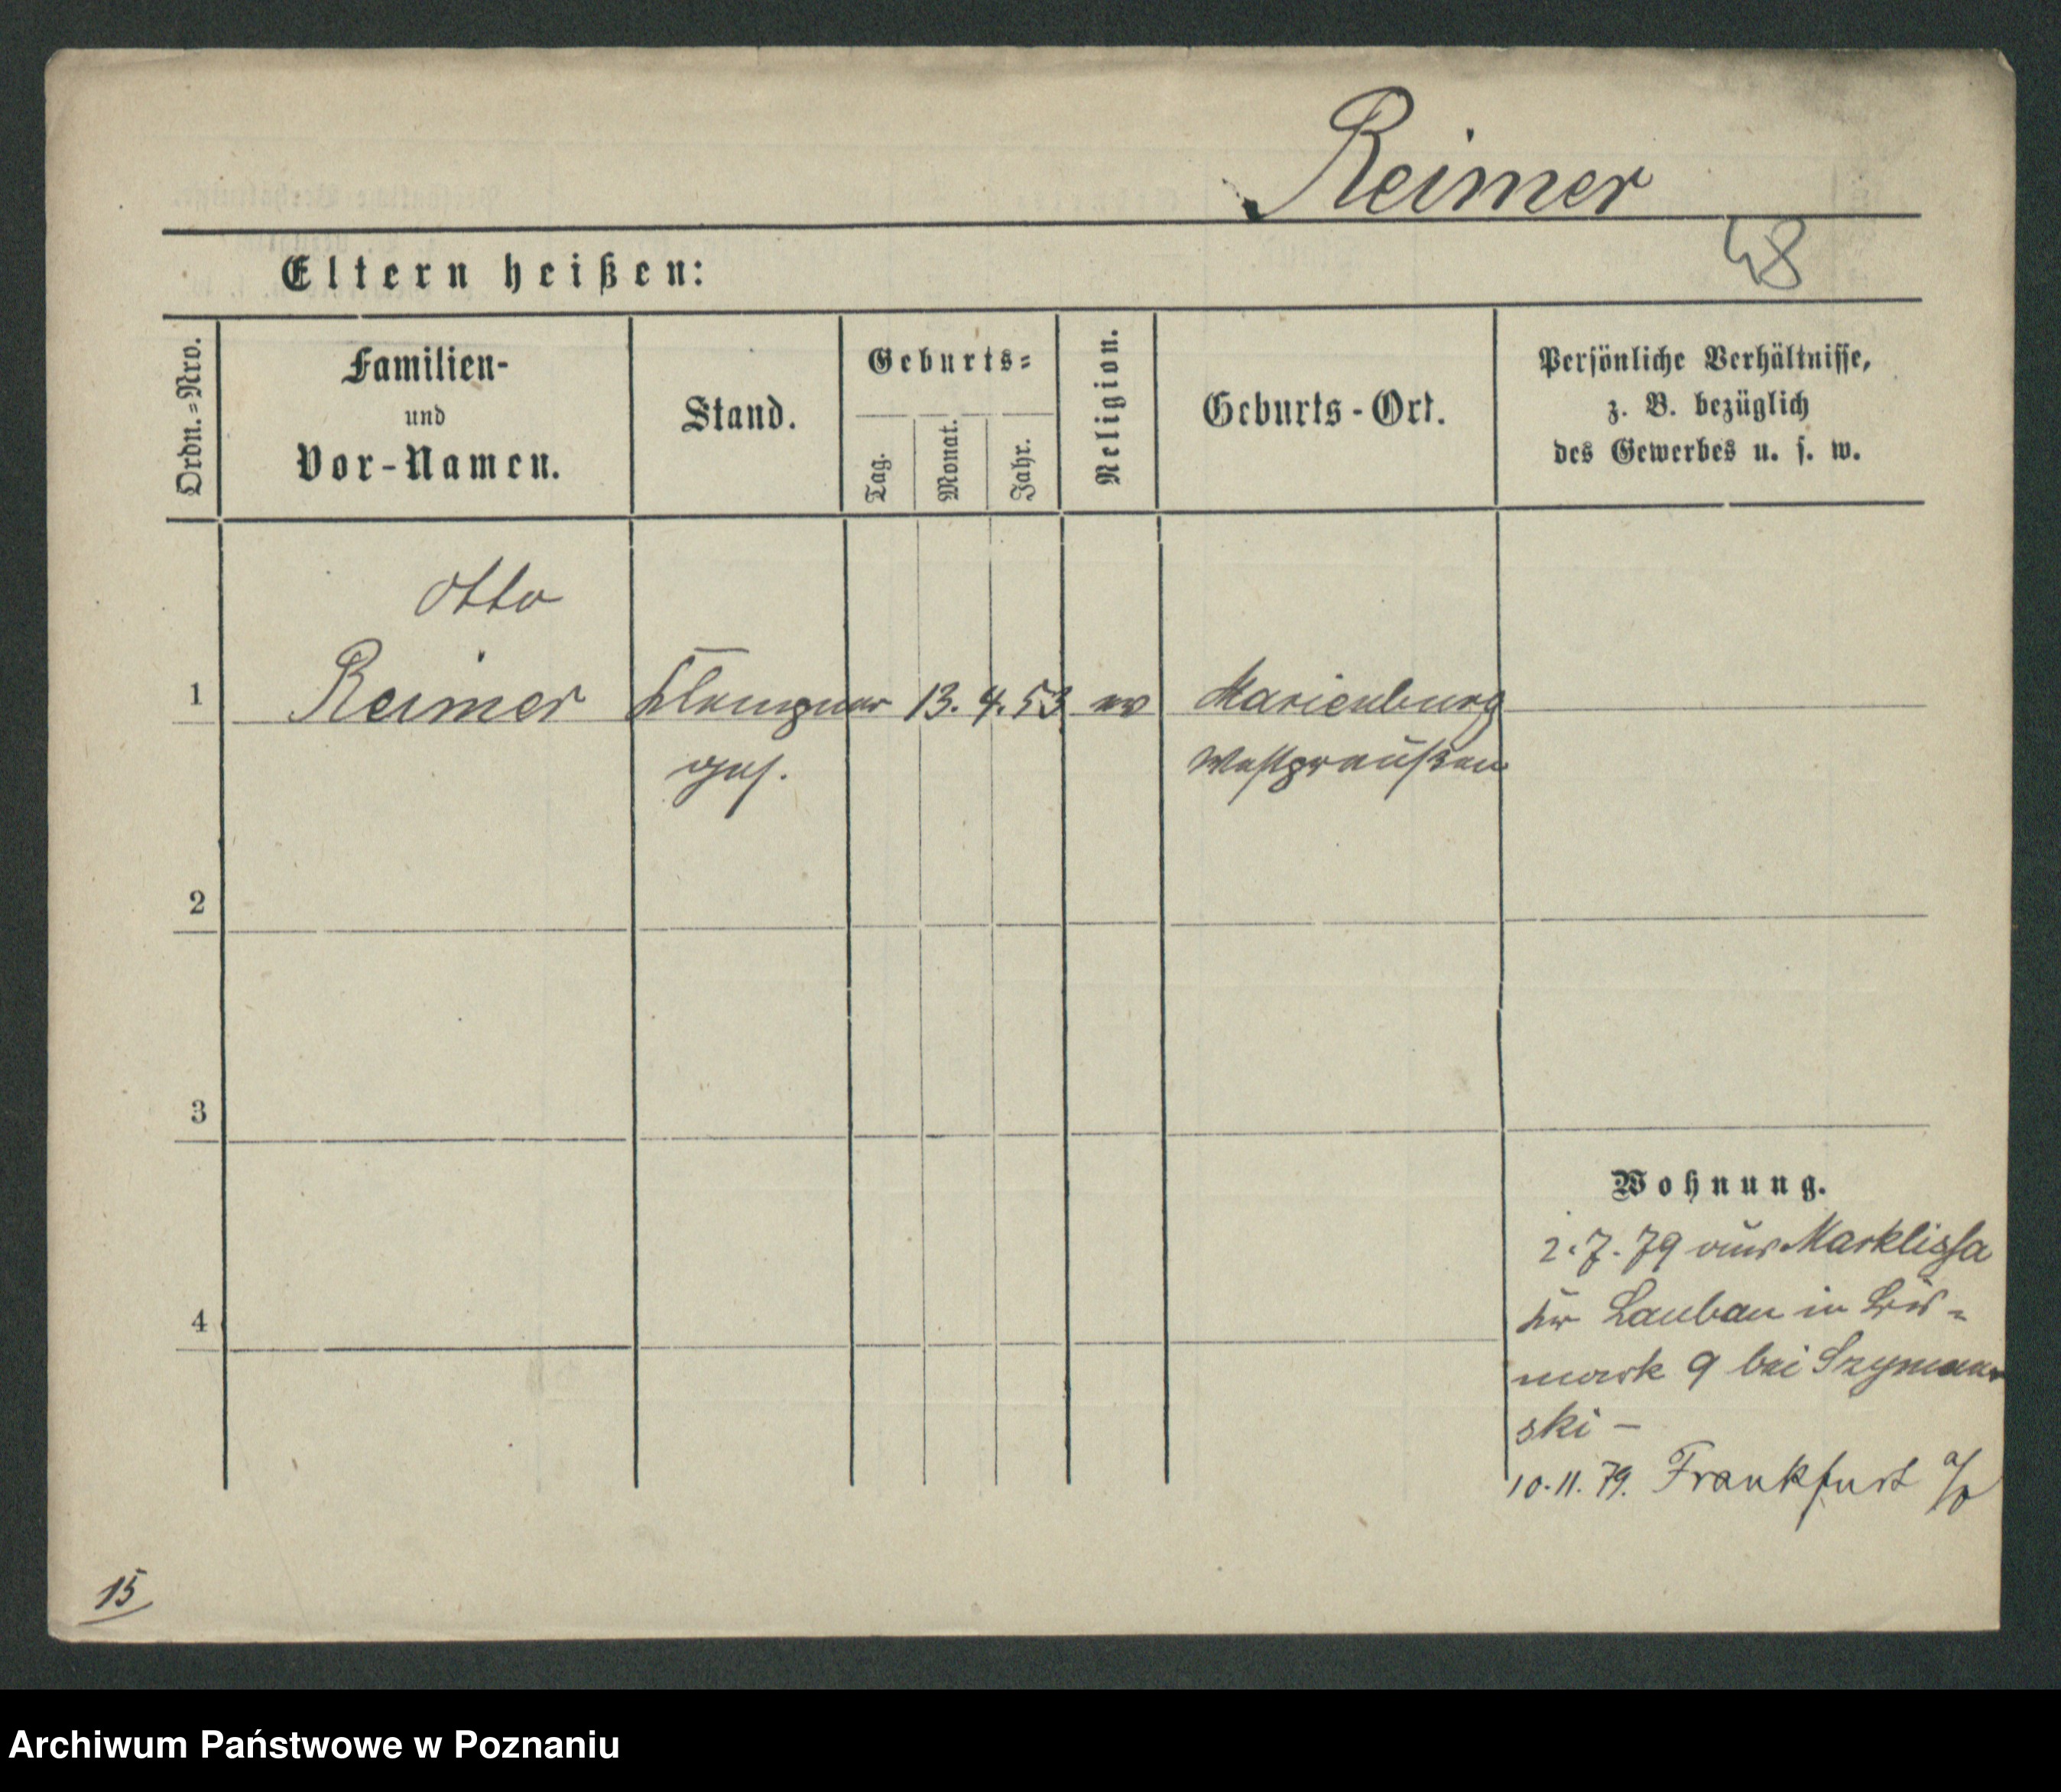 Reimer
48
Eltern heißen:
Ordn.-Nro.
Familien-
und
Vor-Namen.
Stand.
Geburts-
Tag.
Monat.
Jahr.
Religion.
Geburts-Ort.
Persönliche Verhältnisse,
z. B. bezüglich
des Gewerbes u. s. w.
Otto
1 Reimer Klempner 13. 4. 53 ev Marienburg
ges. Westpreußen
2
3
Wohnung.
2.7.79 aus Marklissa
4
Kr Lauban in
mark 9 bei Szyman
ski –
10.11.79. Frankfurt a/O
15
Archiwum Państwowe w Poznaniu